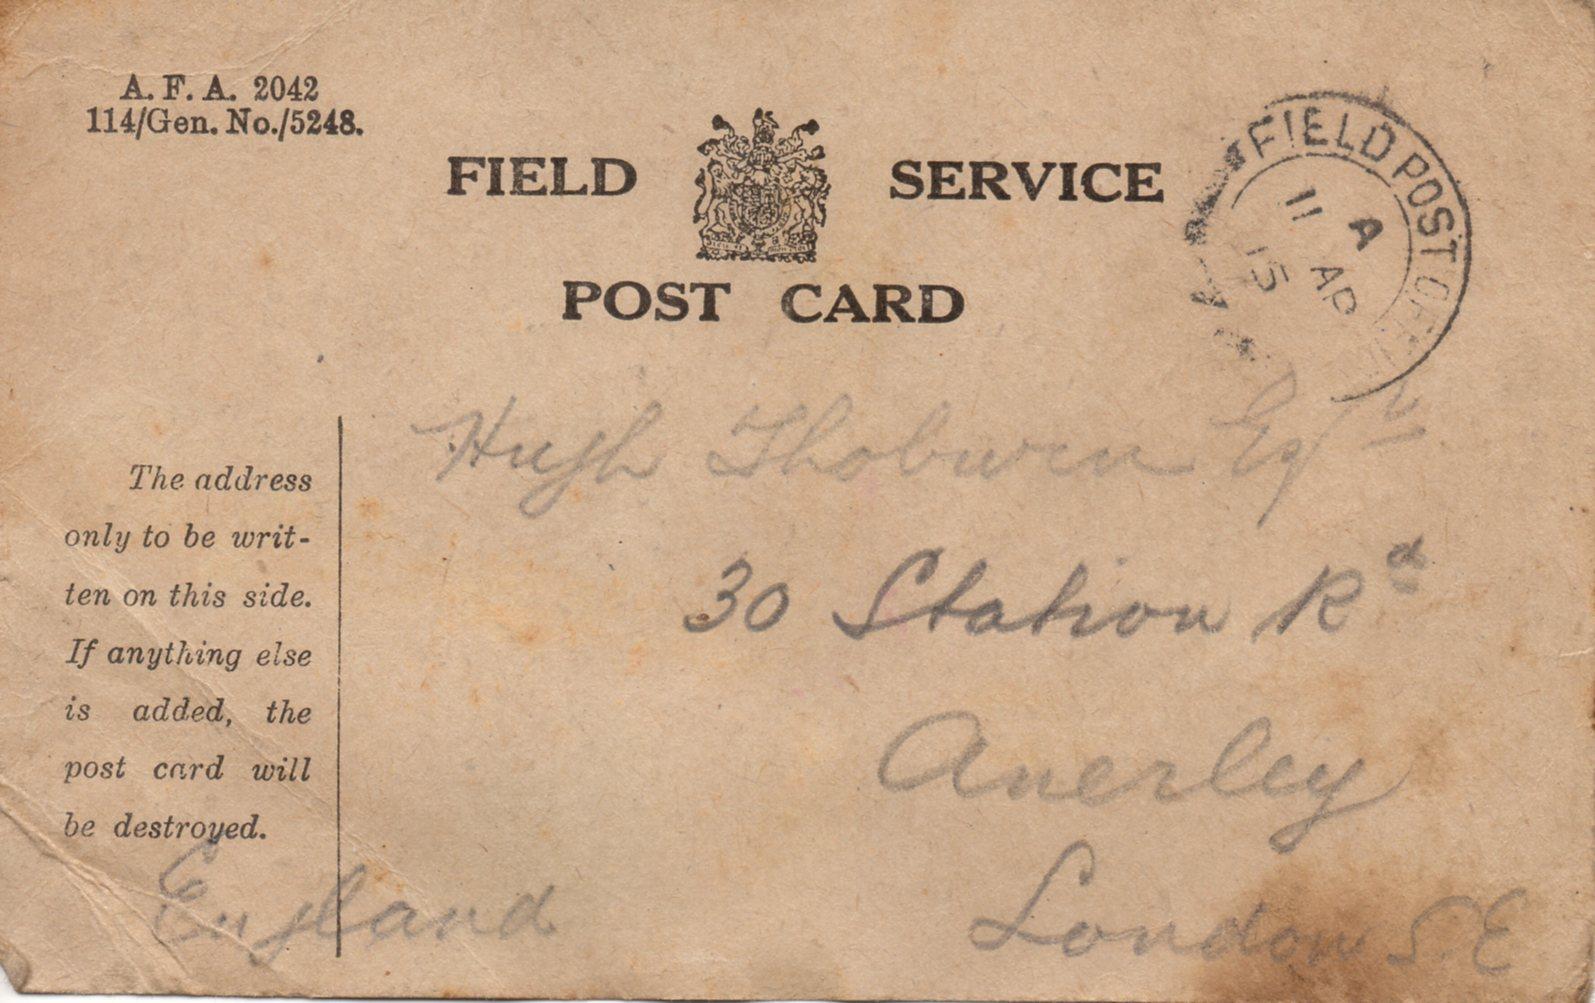 A. F. A. 2042
114/Gen. No./5248.
FIELD SERVICE
POST CARD
FIELD POST OFFICE
A
11 AP
15
The address
only to be writ-
ten on this side.
If anything else
is added, the
post card will
be destroyed.
Hugh Thoburn Esqre
30 Station Rd
Anerley
London S.E
England